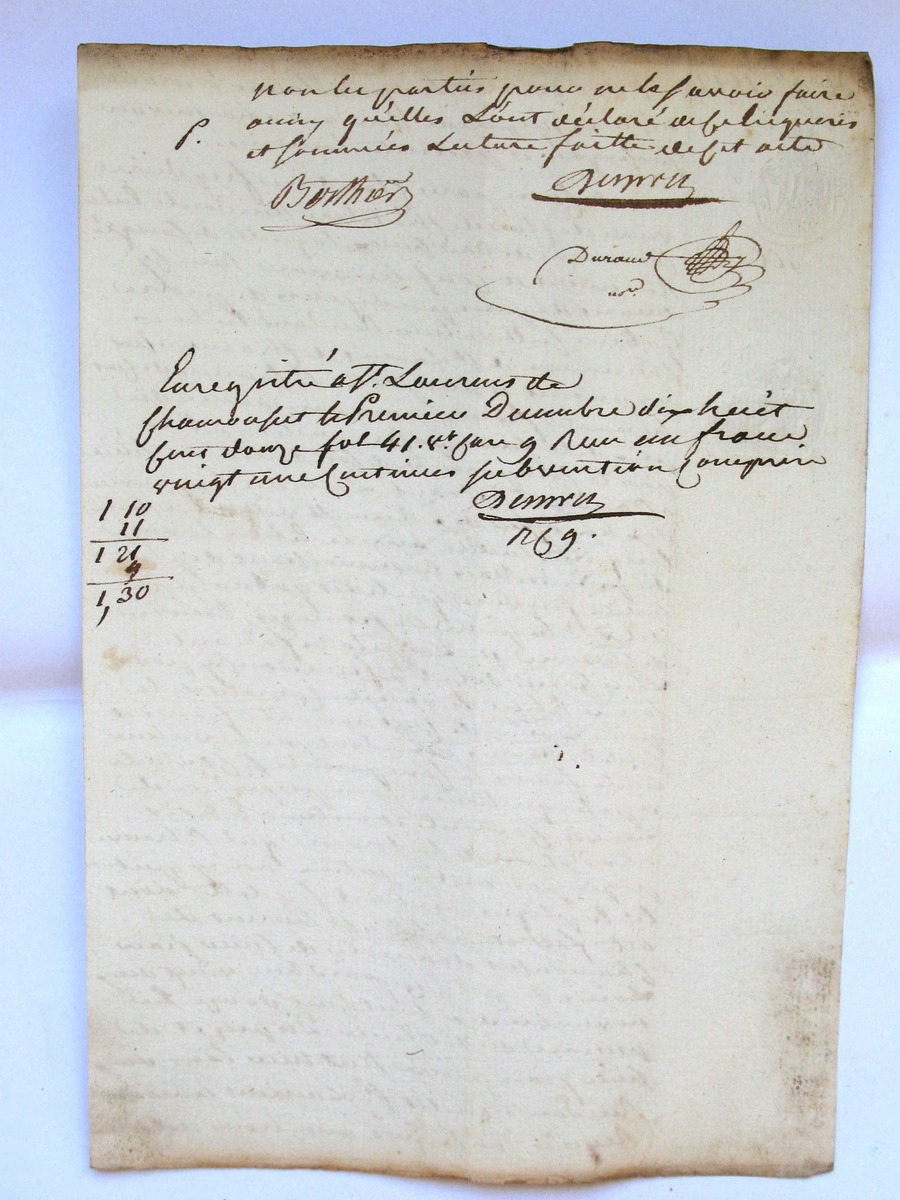 non les parties pour ne le savoir faire
ainsy qu'elles L'ont déclaré de ce enquerés
et sommées Lecture faitte de cet acte
P.
Berthier
Durand
nore
Enregistré a St. Laurens de
Chamousset le Premier Decembre dix huit
Cent douze fol 41. vt. Case 9 Reçu un franc
vingt un Centimes subvention Comprise
1 10
11
1 21
9
1,30